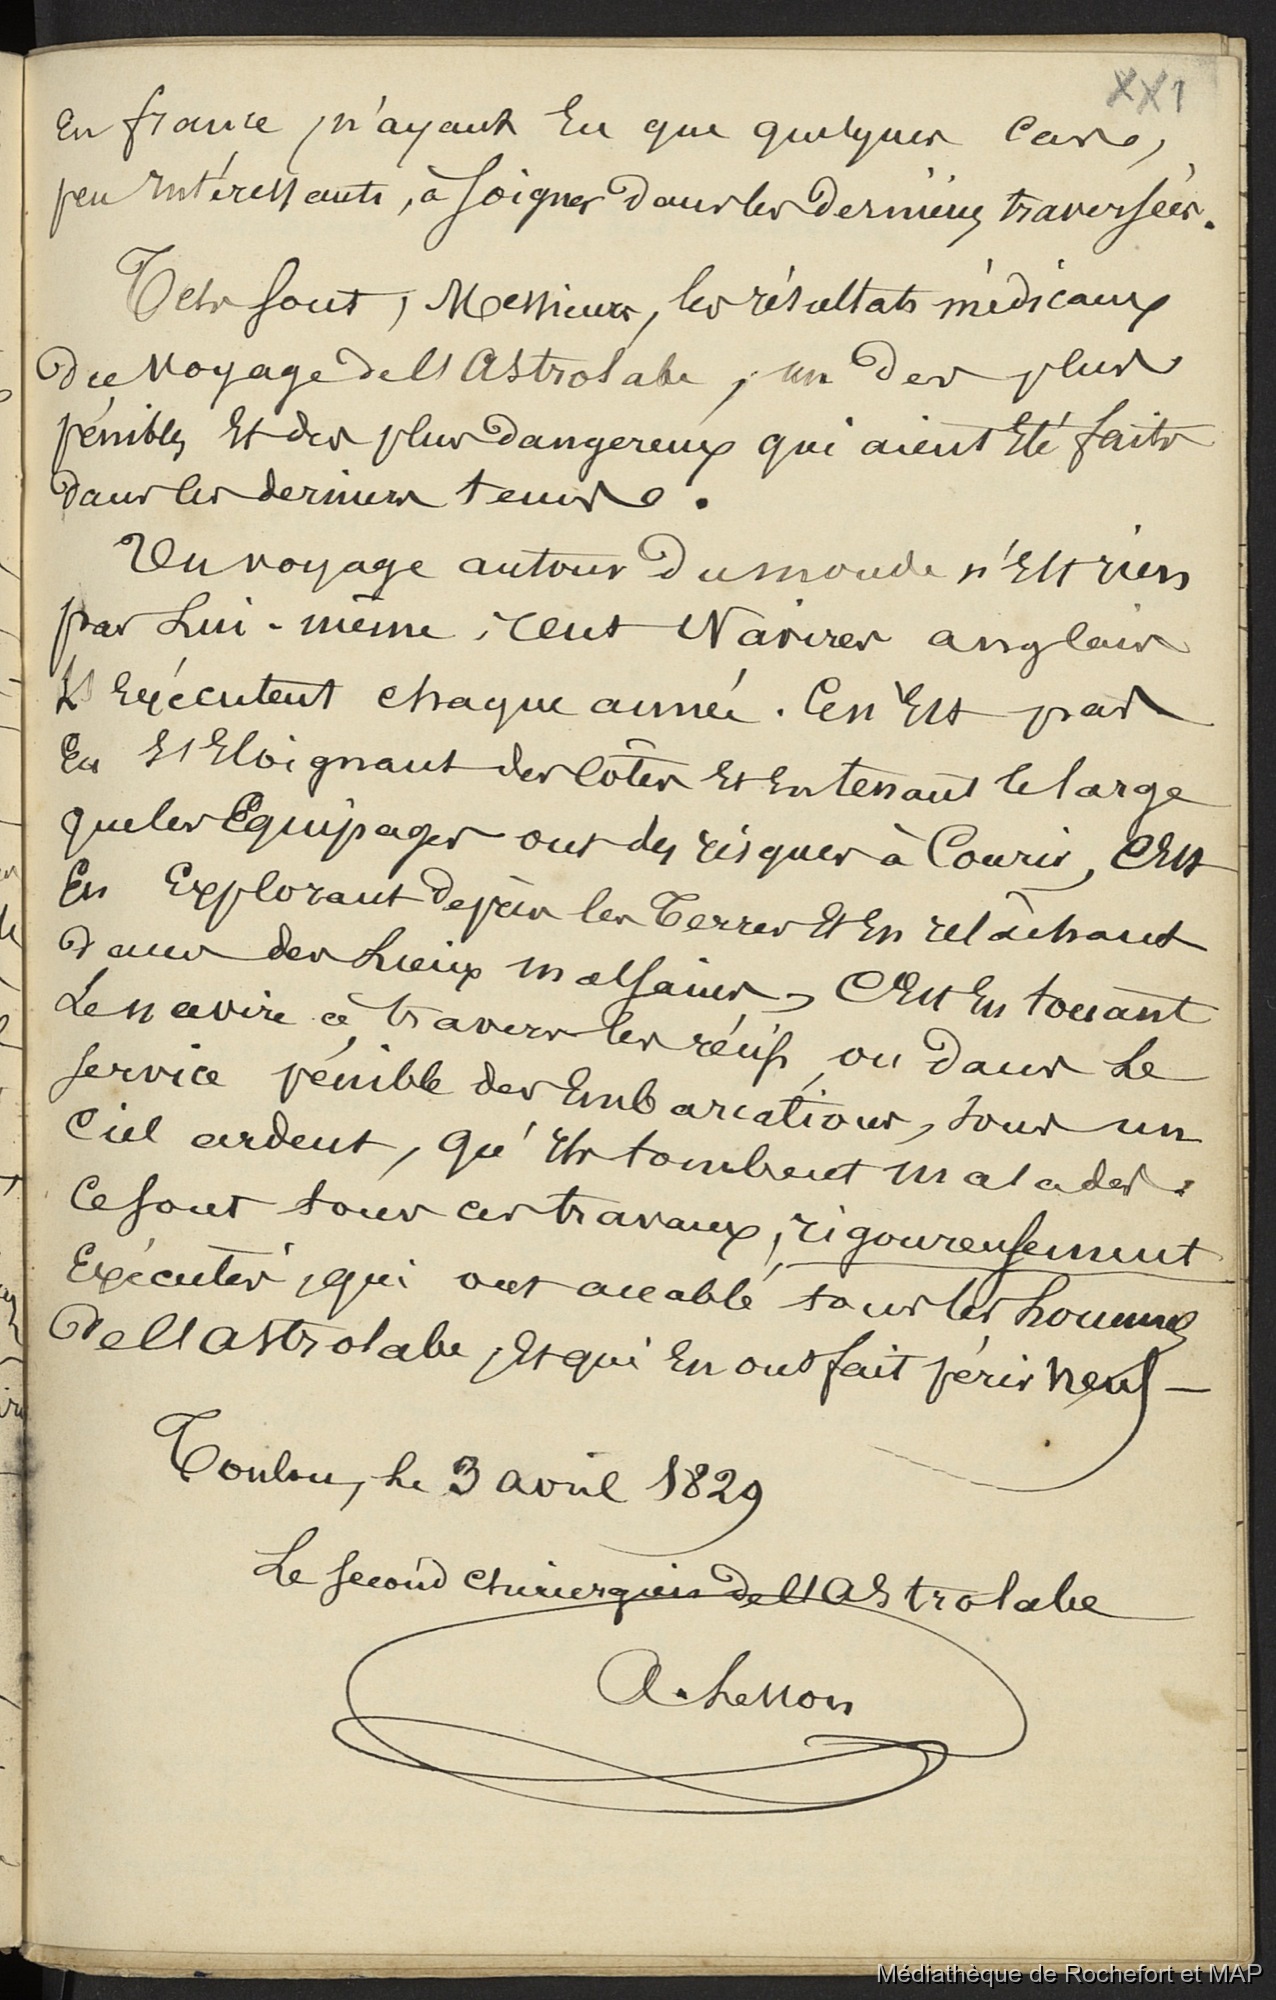 XXI
En france, n'ayant Eu que quelques Cas,
peu Intéressants, à soigner dans les dernières traversées.
Tels sont, Messieurs, les résultats médicaux
du Voyage de l'Astrolabe, un des plus
pénibles Et des plus dangereux qui aient Eté faits
dans les derniers tems.
Un voyage autour du monde n'Est rien
par Lui-même, cent Navires anglais
L'Exécutent chaque année. Ce n'Est pas
En S'Eloignant des Côtes Et En tenant le large
que les Equipages ont des risques à Courir, C'Est
En Explorant de près les Terres Et En relâchant
dans des Lieux malsains, C'Est En touant
Le navire à travers les récifs, ou dans Le
service pénible des Embarcations, sous un
Ciel ardent, qu'Ils tombent malades.
Ce sont tous ces travaux, rigoureusement
Exécutés, qui ont accablé tous les hommes
de l'Astrolabe, Et qui En ont fait périr neuf —
Toulon, Le 3 avril 1829
Le second chirurgien de l'Astrolabe
A. Lesson
Médiathèque de Rochefort et MAP